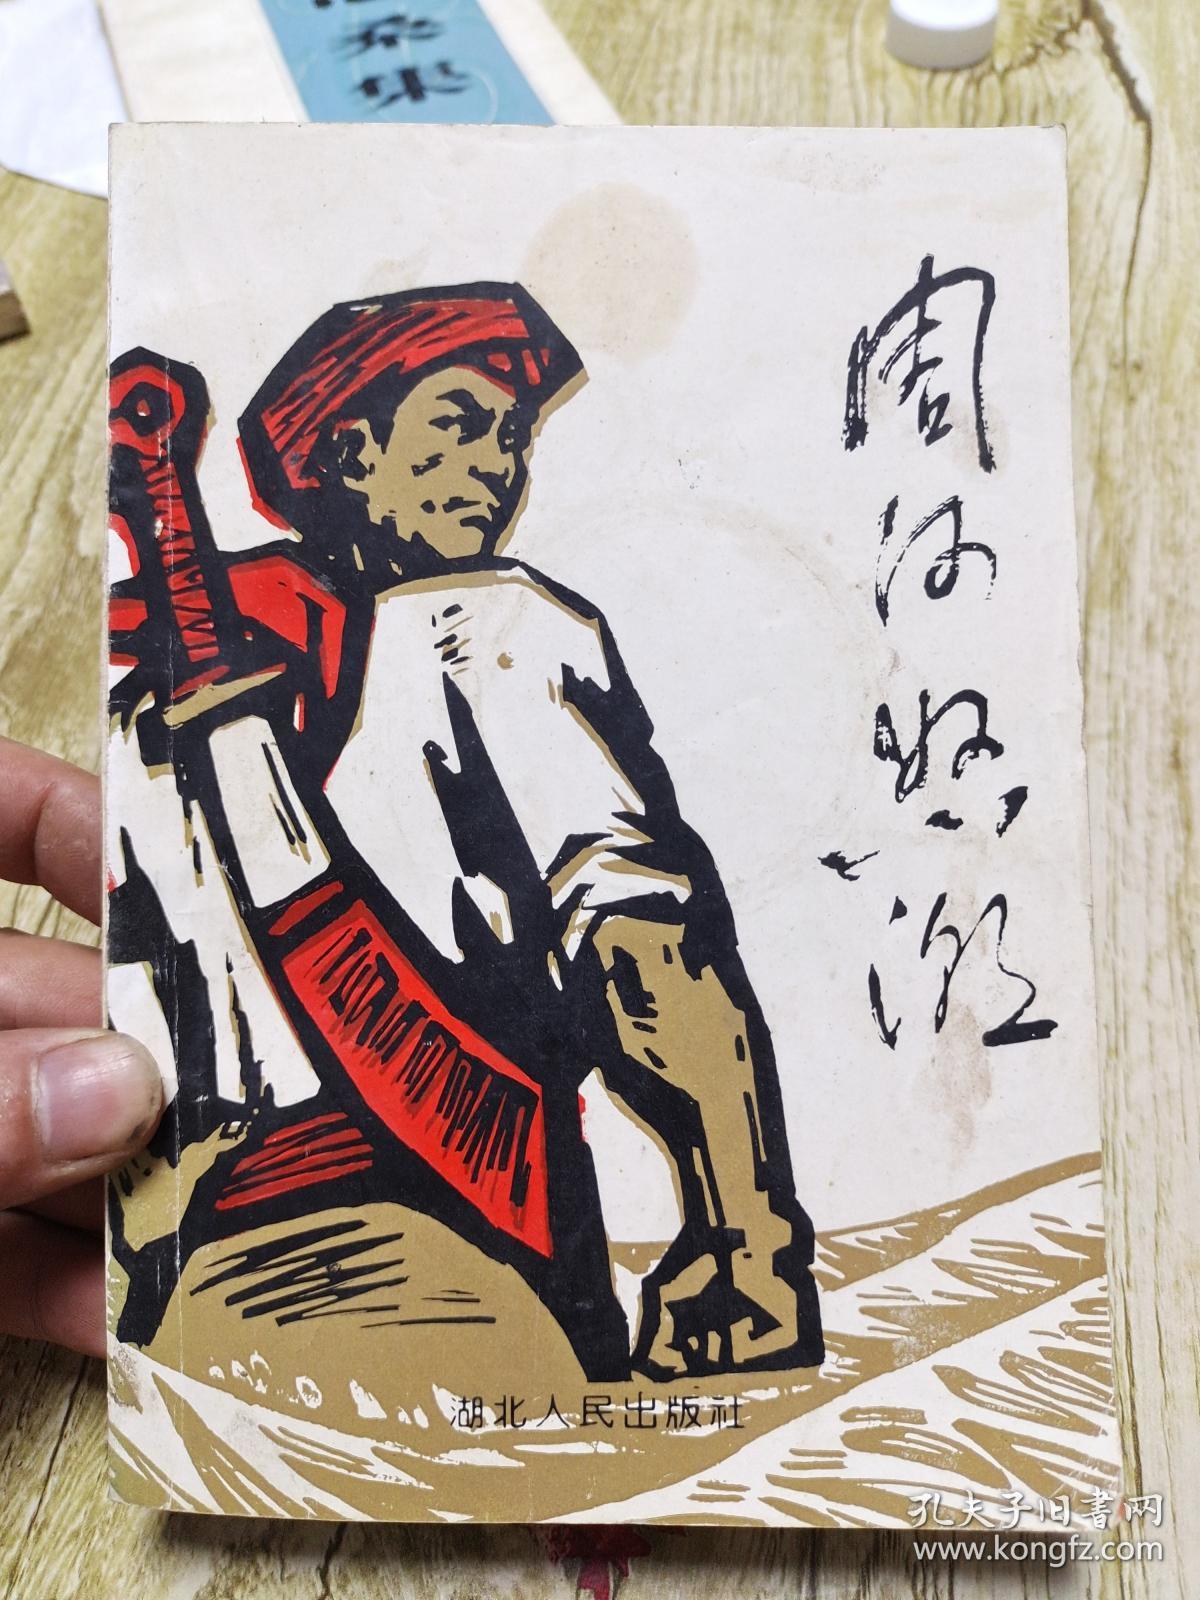 集
周河怒潮
湖北人民出版社
孔夫子旧书网
www.kongfz.com